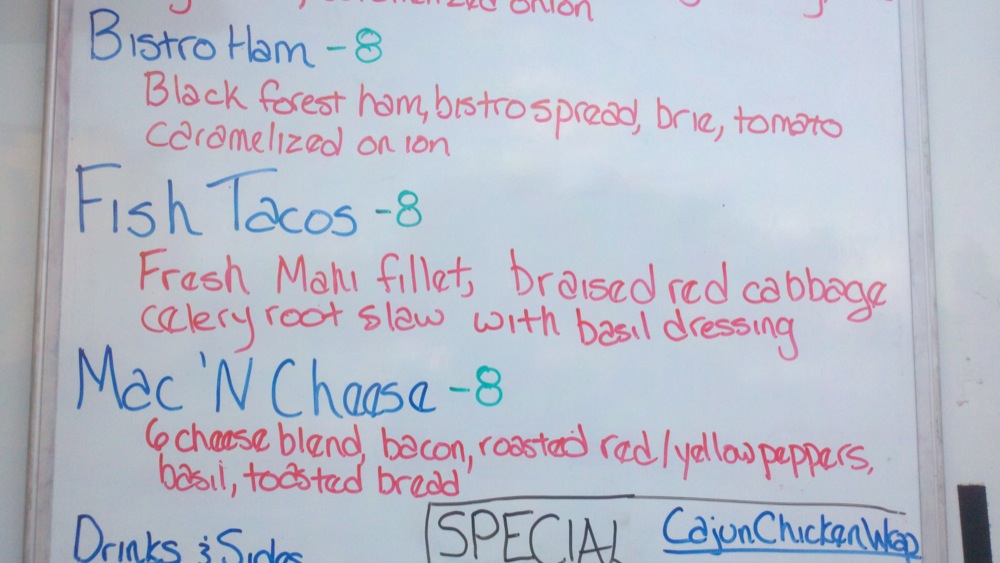 onion
Bistro Ham - 8
Black forest ham, bistro spread, brie, tomato
caramelized onion
Fish Tacos - 8
Fresh Mahi fillet, braised red cabbage
celery root slaw with basil dressing
Mac 'N Cheese - 8
6 cheese blend, bacon, roasted red/yellow peppers,
basil, toasted bread
Drinks & Sides
SPECIAL Cajun Chicken Wrap